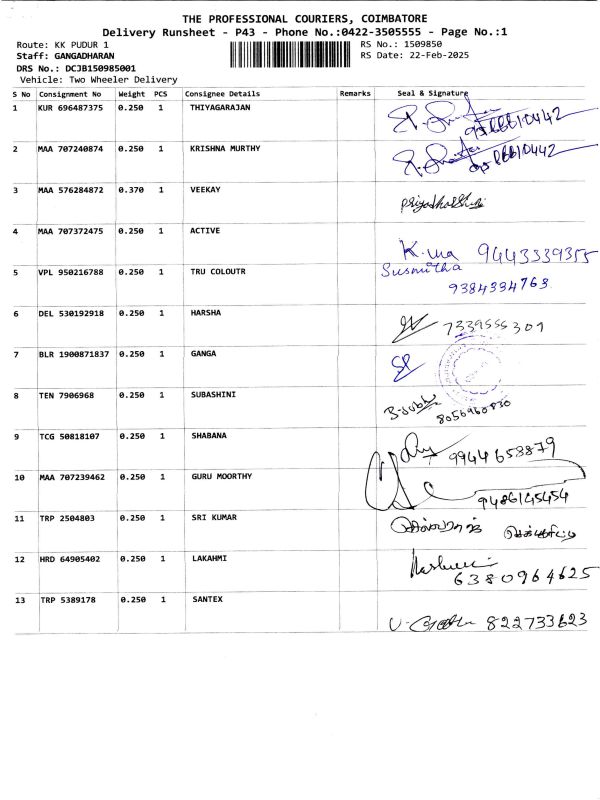 THE PROFESSIONAL COURIERS, COIMBATORE
Delivery Runsheet - P43 - Phone No.:0422-3505555 - Page No.:1
Route: KK PUDUR 1 RS No.: 1509850
Staff: GANGADHARAN RS Date: 22-Feb-2025
DRS No.: DCJB150985001
Vehicle: Two Wheeler Delivery
S No Consignment No Weight PCS Consignee Details Remarks Seal & Signature
1 KUR 696487375 0.250 1 THIYAGARAJAN
2 MAA 707240874 0.250 1 KRISHNA MURTHY
3 MAA 576284872 0.370 1 VEEKAY
4 MAA 707372475 0.250 1 ACTIVE 9443339355
5 VPL 950216788 0.250 1 TRU COLOUTR Susmitha
9384334763
6 DEL 530192918 0.250 1 HARSHA 7339555301
7 BLR 1900871837 0.250 1 GANGA
8 TEN 7906968 0.250 1 SUBASHINI 8056960830
9 TCG 50818107 0.250 1 SHABANA 9944658879
10 MAA 707239462 0.250 1 GURU MOORTHY 9486145454
11 TRP 2504803 0.250 1 SRI KUMAR
12 HRD 64905402 0.250 1 LAKAHMI
6380964625
13 TRP 5389178 0.250 1 SANTEX 822733623